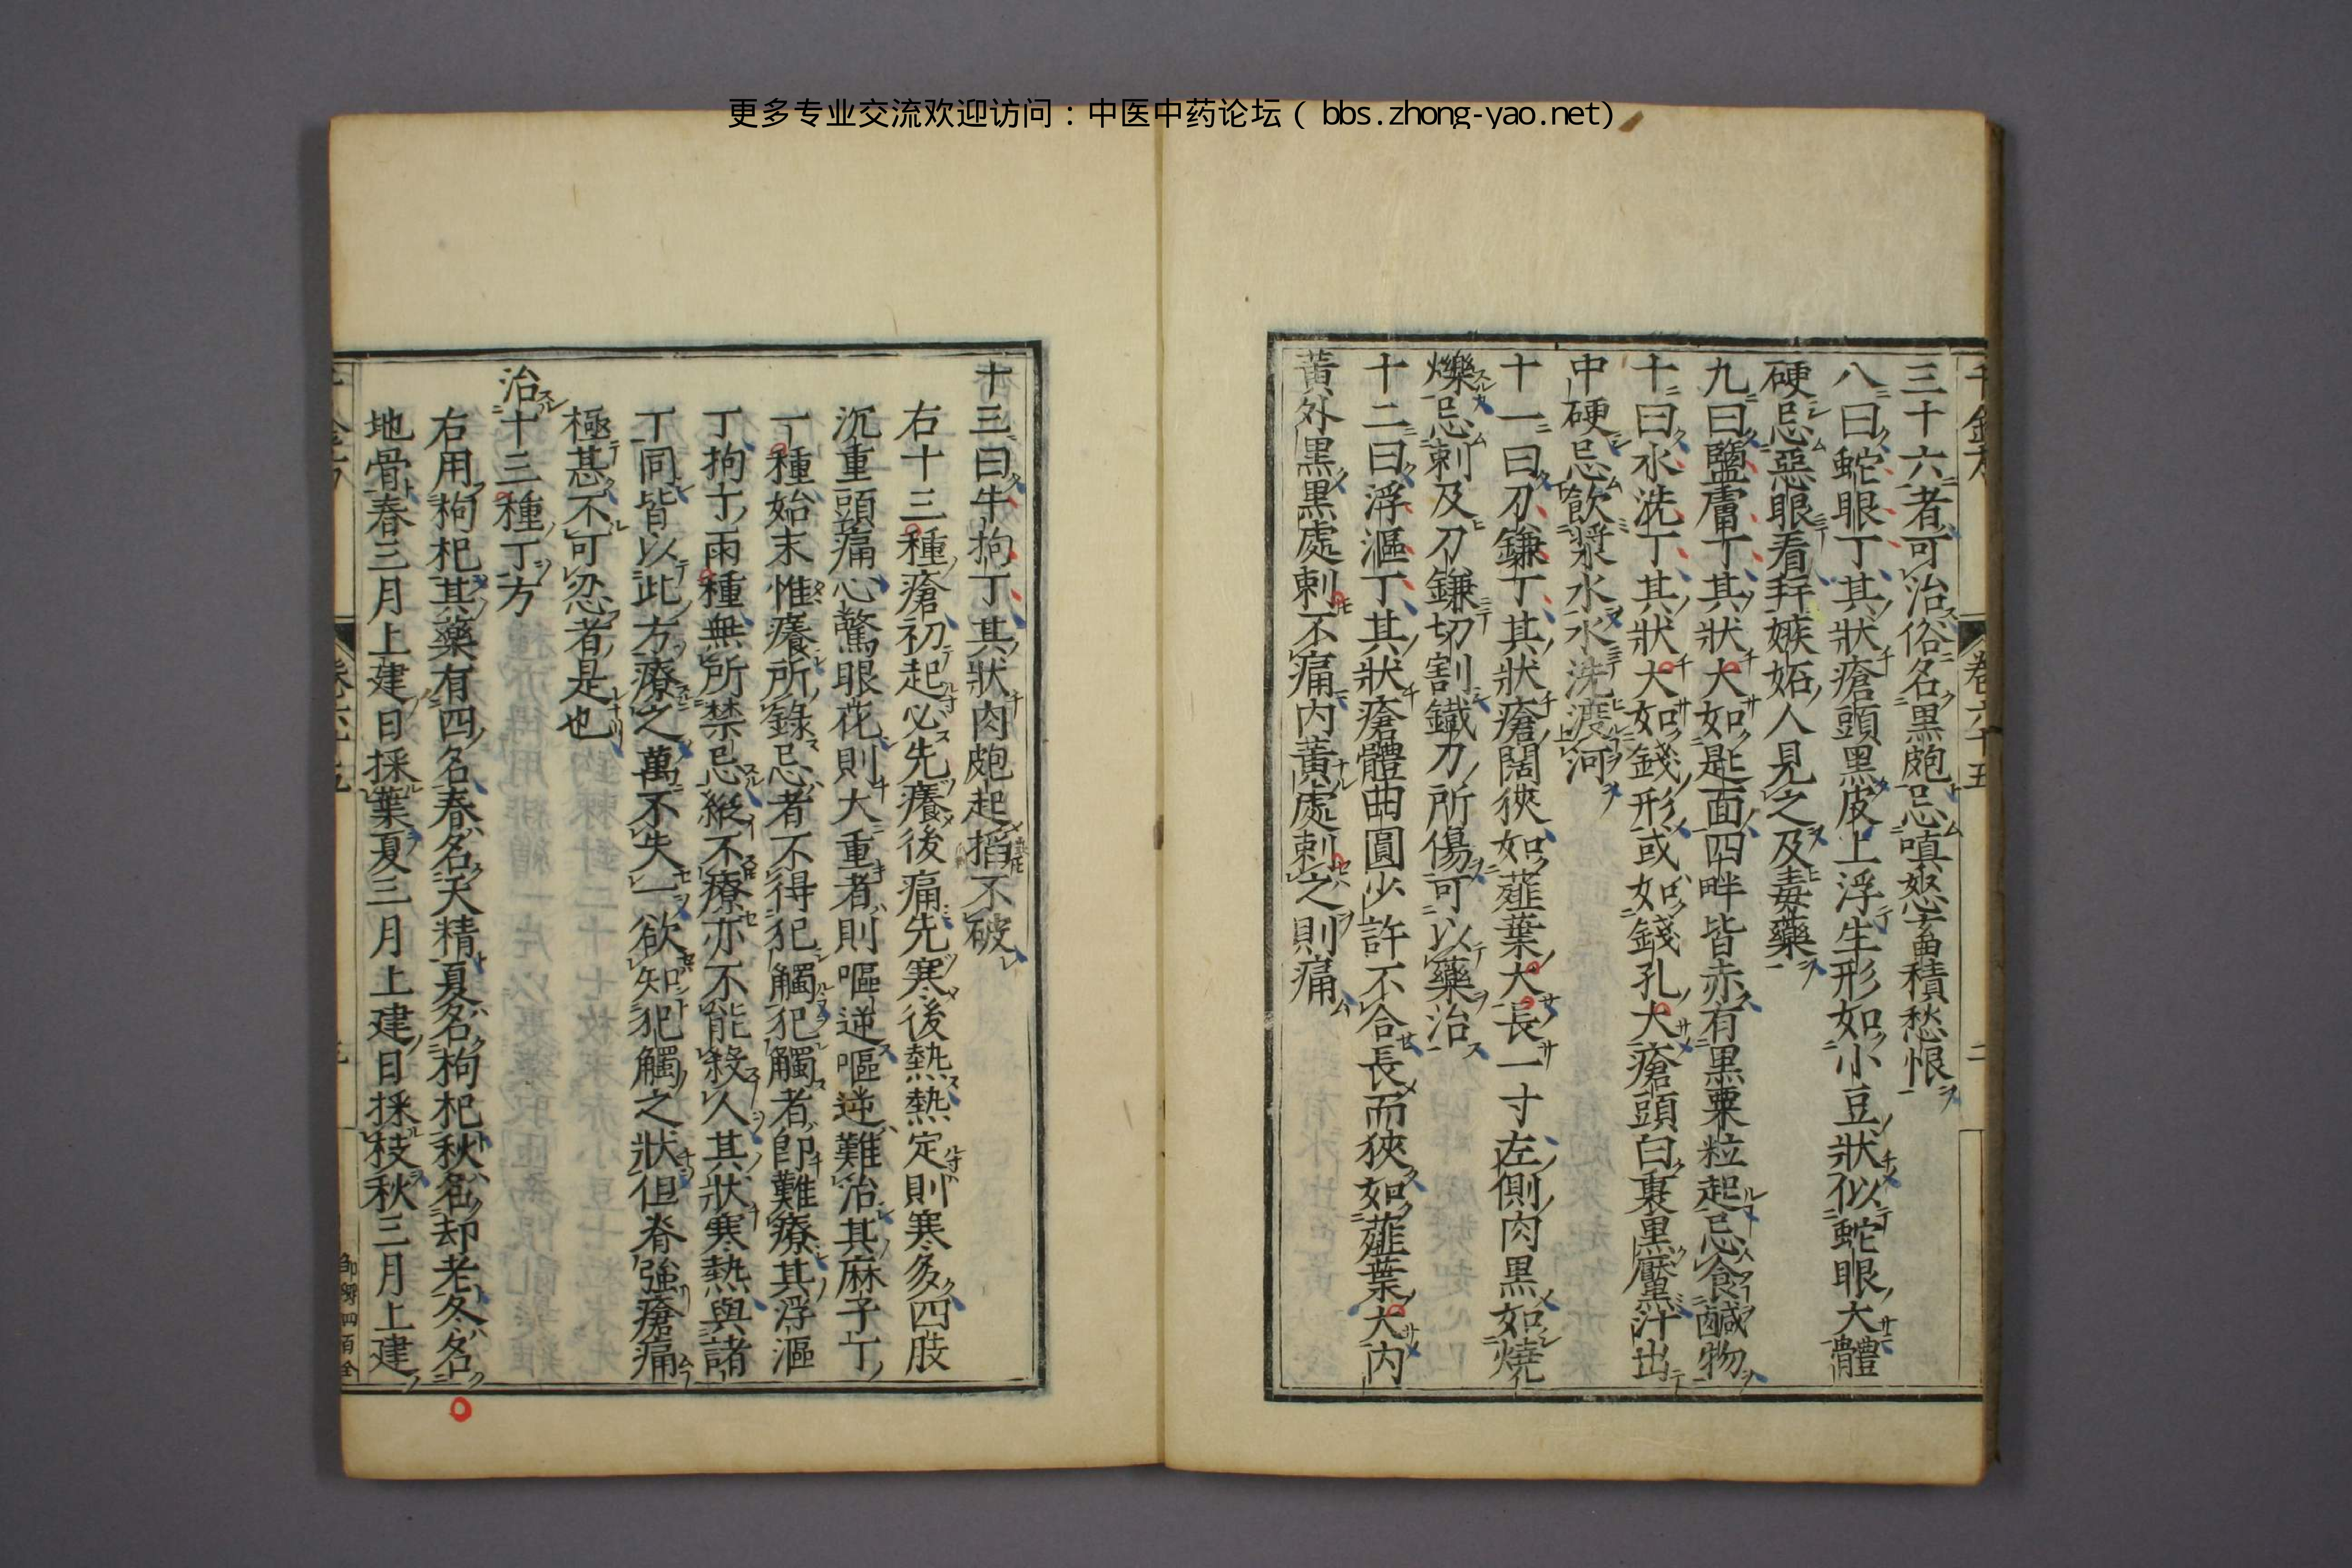 更多专业交流欢迎访问：中医中药论坛（ bbs.zhong-yao.net)
卷六十五
二
三十六者可治俗名黑皰忌嗔怒蓄積愁恨
八曰蛇眼丁其狀瘡頭黑皮上浮生形如小豆狀似蛇眼大體
硬忌惡眼看并嫉妬人見之及毒藥
九曰鹽膚丁其狀大如匙面四畔皆赤有黑粟粒起忌食鹹物
十曰水洗丁其狀大如錢形或如錢孔大瘡頭白裏黑黶汁出
中硬忌飲漿水水洗渡河
十一曰刀鎌丁其狀瘡闊狹如薤葉大長一寸左側肉黑如燒
爍忌刺及刀鎌切割鐵刀所傷可以藥治
十二曰浮漚丁其狀瘡體曲圓少許不合長而狹如薤葉大內
黃外黑黑處刺不痛內黃處刺之則痛
十三曰牛拘丁其狀肉皰起掐不破
右十三種瘡初起必先癢後痛先寒後熱熱定則寒多四肢
沉重頭痛心驚眼花則大重者則嘔逆嘔逆難治其麻子丁
一種始末惟癢所錄忌者不得犯觸犯觸者卽難療其浮漚
丁拘丁兩種無所禁忌縱不療亦不能殺人其狀寒熱與諸
丁同皆以此方療之萬不失一欲知犯觸之狀但脊強瘡痛
極甚不可忍者是也
治十三種丁方
右用枸杞其藥有四名春名天精夏名枸杞秋名却老冬名
地骨春三月上建日採葉夏三月上建日採枝秋三月上建